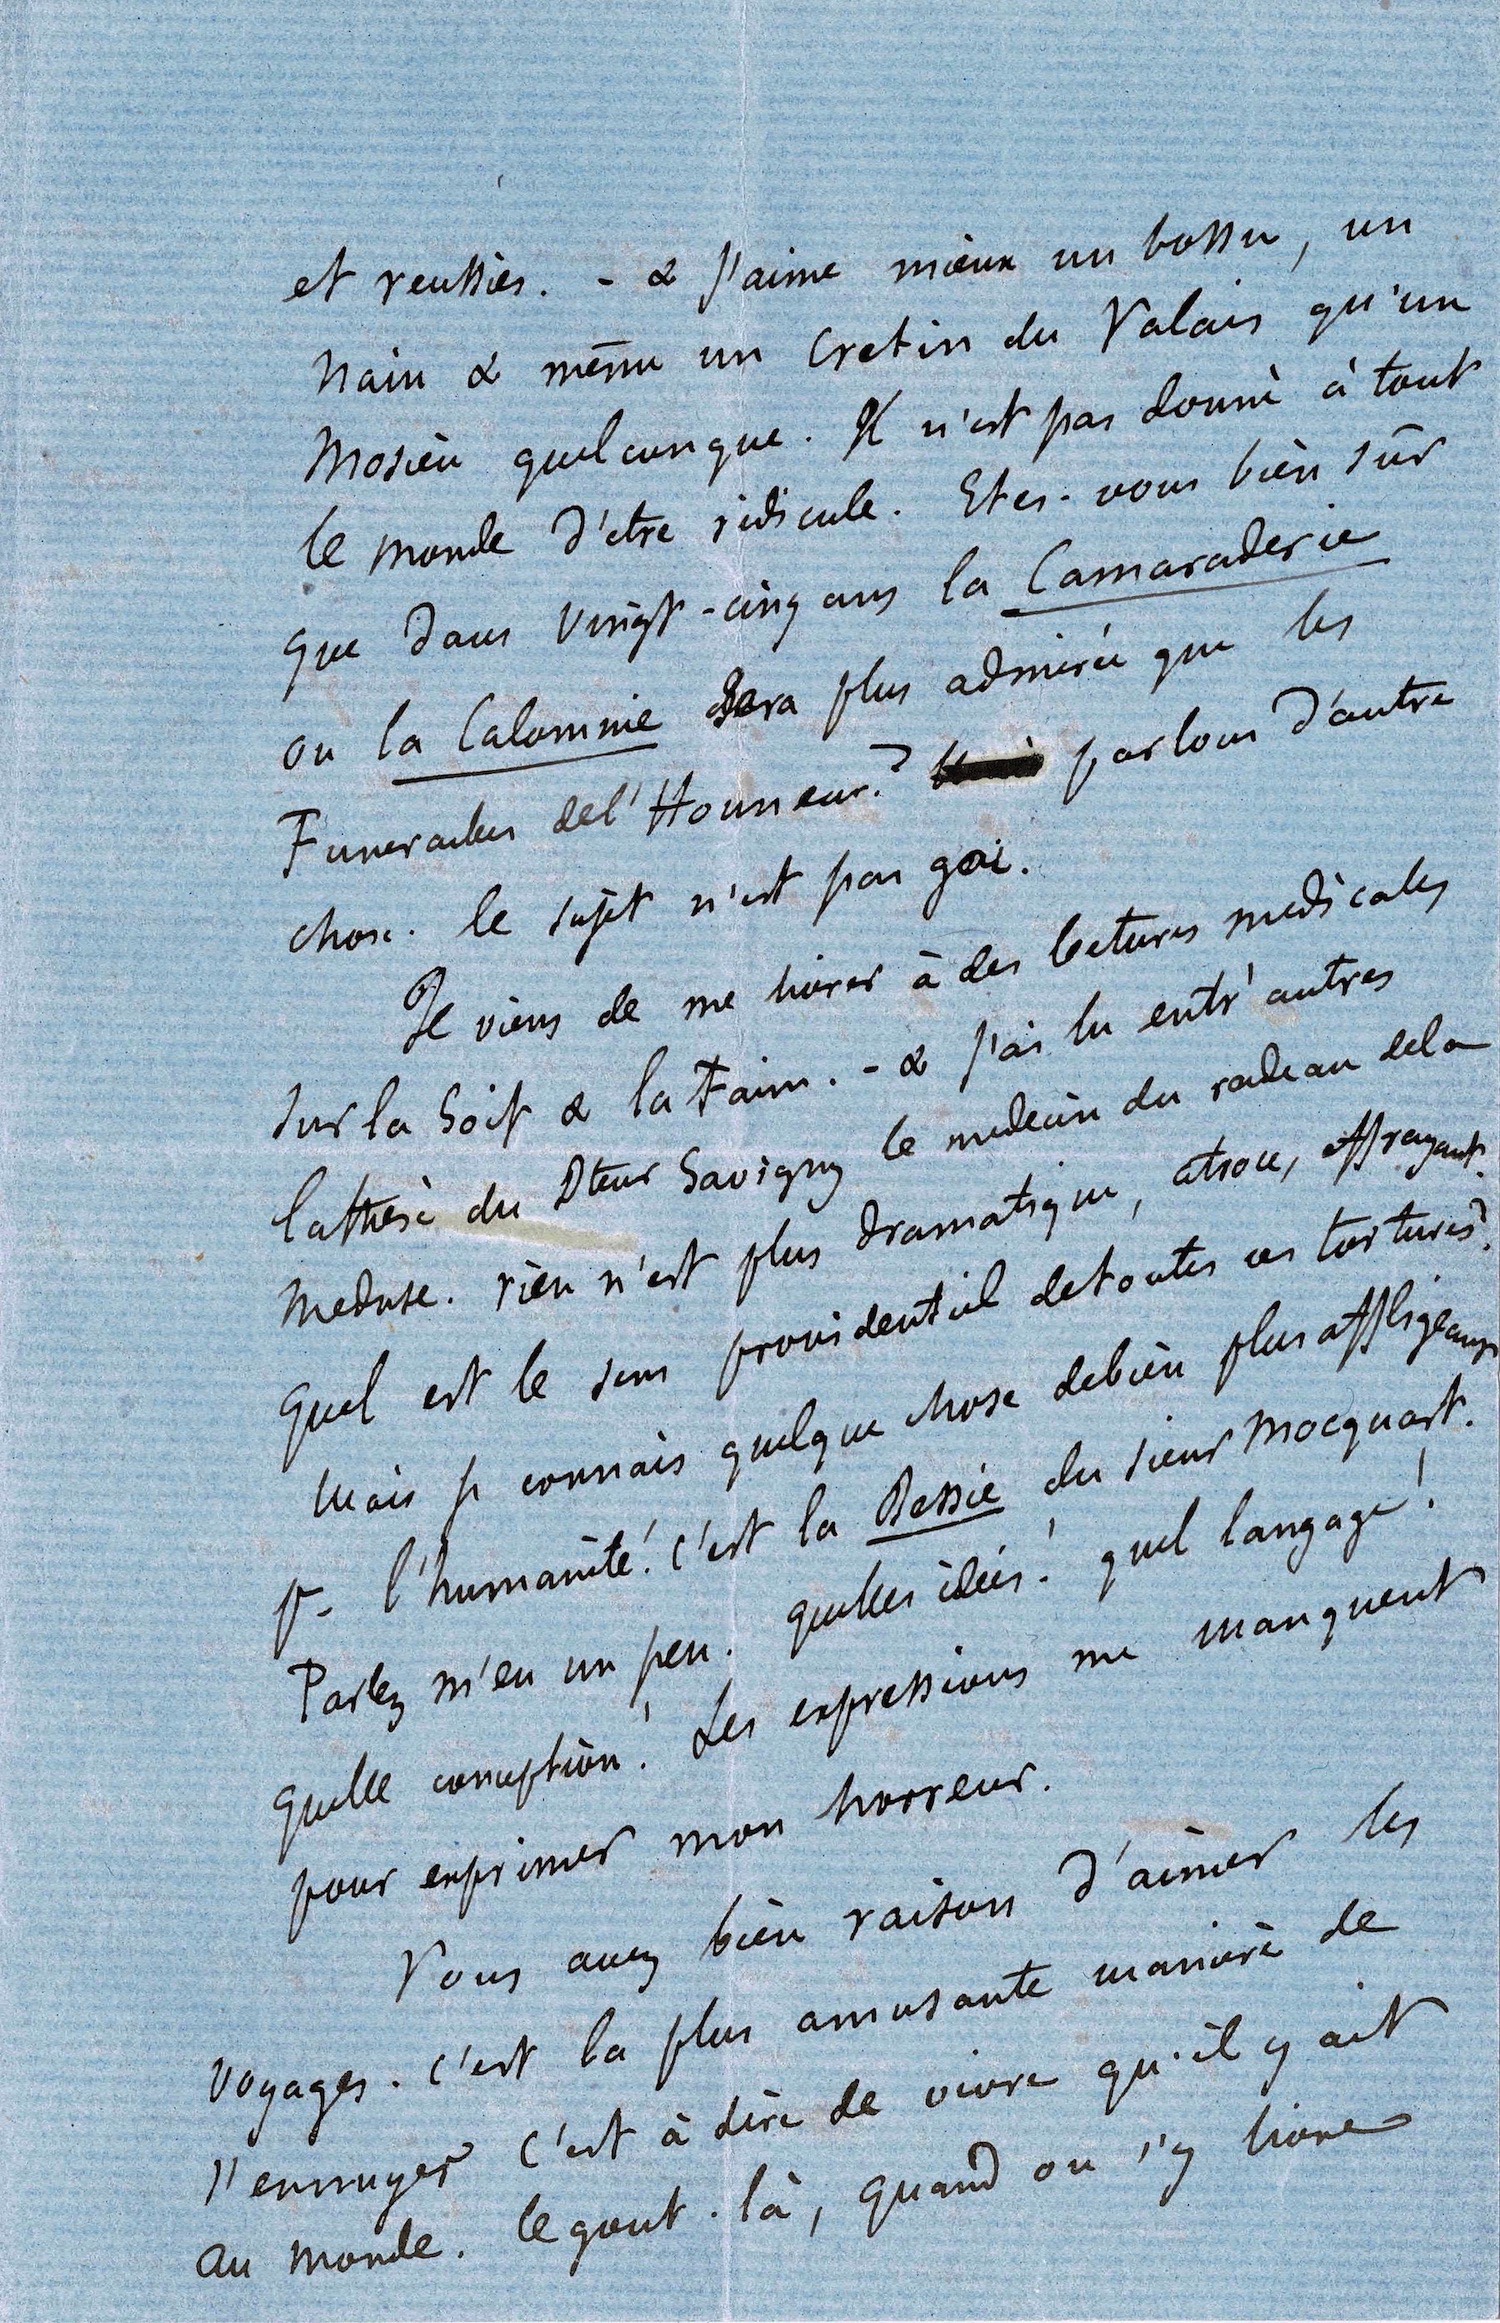 et reussies. - & j'aime mieux un bossu, un
nain & même un Cretin du Valais qu'un
Mosieu quelcunque. Il n'est pas donné à tout
le monde d'etre ridicule. Etes-vous bien sûr
que dans vingt-cinq ans la Camaraderie
ou la Calomnie sera plus admirée que les
Funerailles de l'Honneur? parlons d'autre
chose. le sujet n'est pas gai.
Je viens de me livrer à des lectures medicales
sur la Soif & la Faim. - & j'ai lu entr'autres
la thèse du Dteur Savigny le medecin du radeau de la
Meduse. rien n'est plus dramatique, atroce, effrayant.
Quel est le sens providentiel de toutes ces tortures?
Mais je connais quelque chose de bien plus affligeant
pr. l'humanité! c'est la Bessie du sieur Mocquart.
Parlez m'en un peu. quelles idées! quel langage!
quelle corruption! Les expressions me manquent
pour exprimer mon horreur.
Vous avez bien raison d'aimer les
voyages. c'est la plus amusante manière de
s'ennuyer c'est à dire de vivre qu'il y ait
au monde. le gout-là, quand on s'y livre